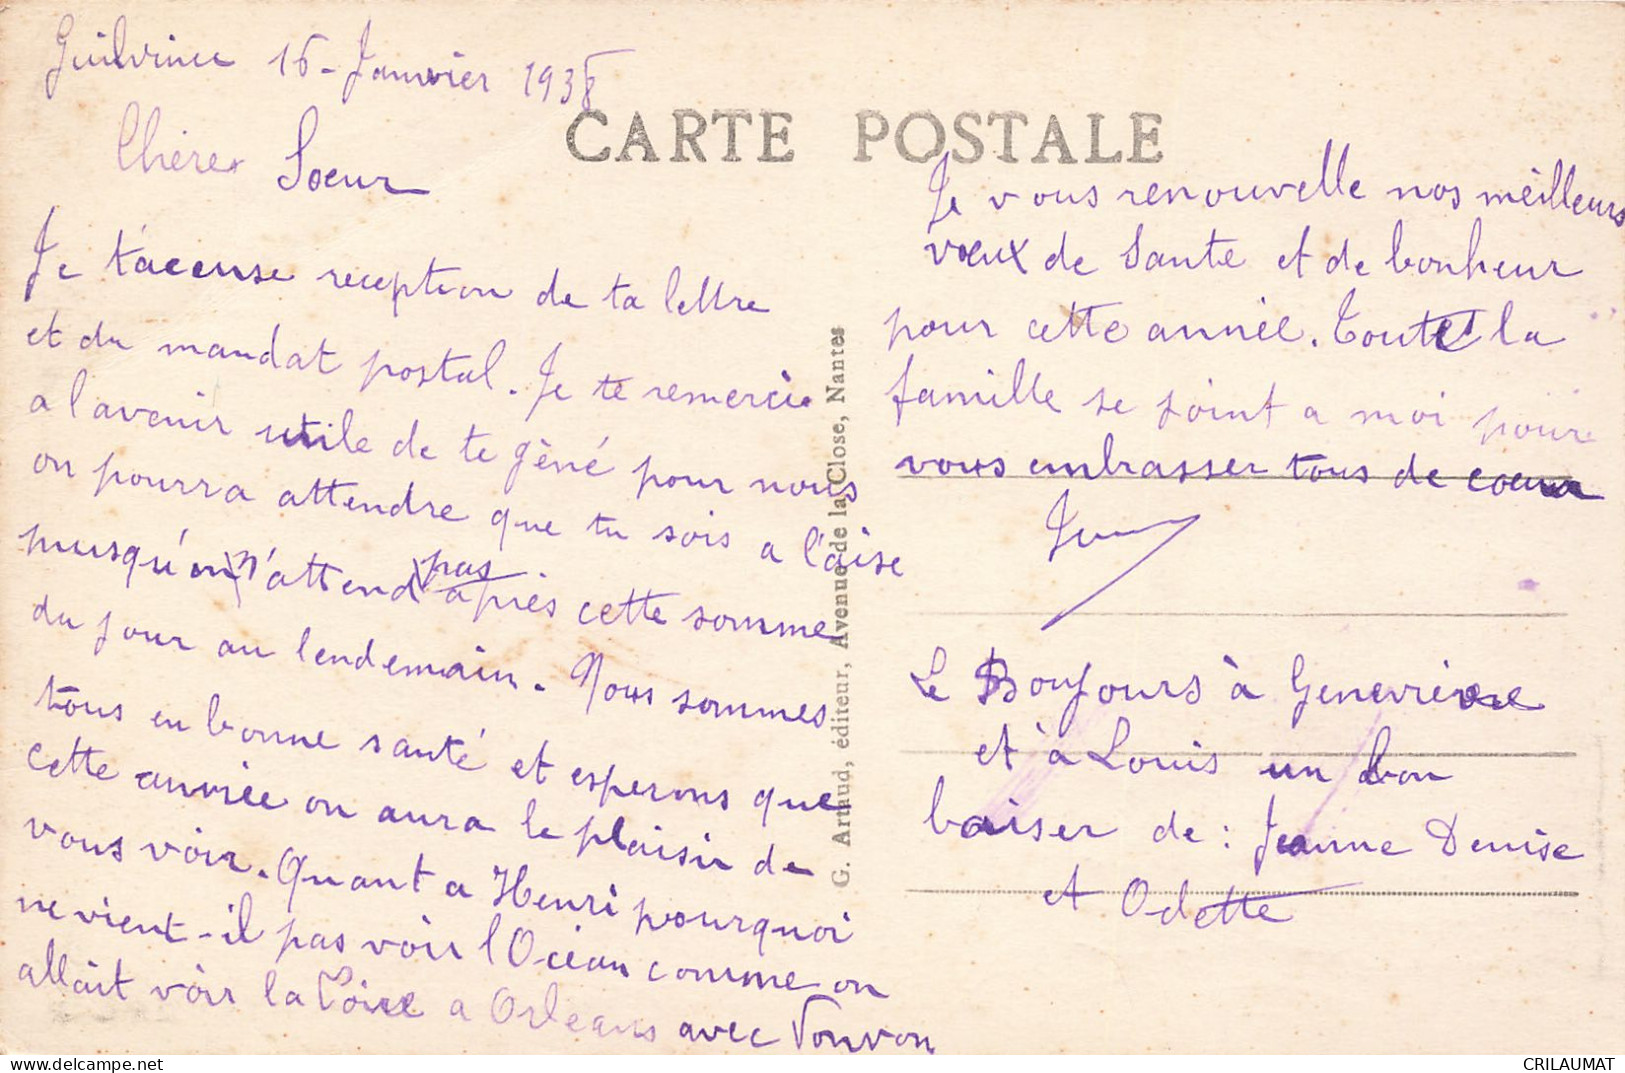 Guilvinec 16 - Janvier 1938
CARTE POSTALE
Chère Soeur
Je t'accuse reception de ta lettre
et du mandat postal. Je te remercie
a l'avenir utile de te gèné pour nous
on pourra attendre que tu sois a l'aise
puisqu'on n'attend pas après cette somme
du jour au lendemain. Nous sommes
tous en bonne santé et esperons que
cette année on aura le plaisir de
vous voir. Quant a Henri pourquoi
ne vient-il pas voir l'Océan comme on
allait voir la Loire a Orleans avec Vonvon
G. Artaud, éditeur, Avenue de la Close, Nantes
Je vous renouvelle nos meilleurs
voeux de Santé et de bonheur
pour cette année. Toute la
famille se joint a moi pour
vous embrasser tous de coeur
Le Bonjours à Geneviève
et à Louis un bon
baiser de : Jeanne Denise
et Odette
delcampe.net
CRILAUMAT